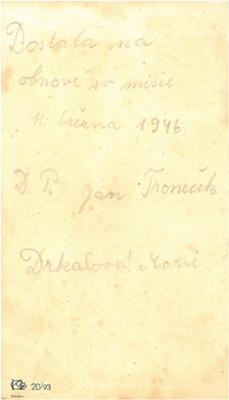 Dostala na
obnově sv misie
11. března 1946.
D. P. Jan
Drkalová Marie
20/93